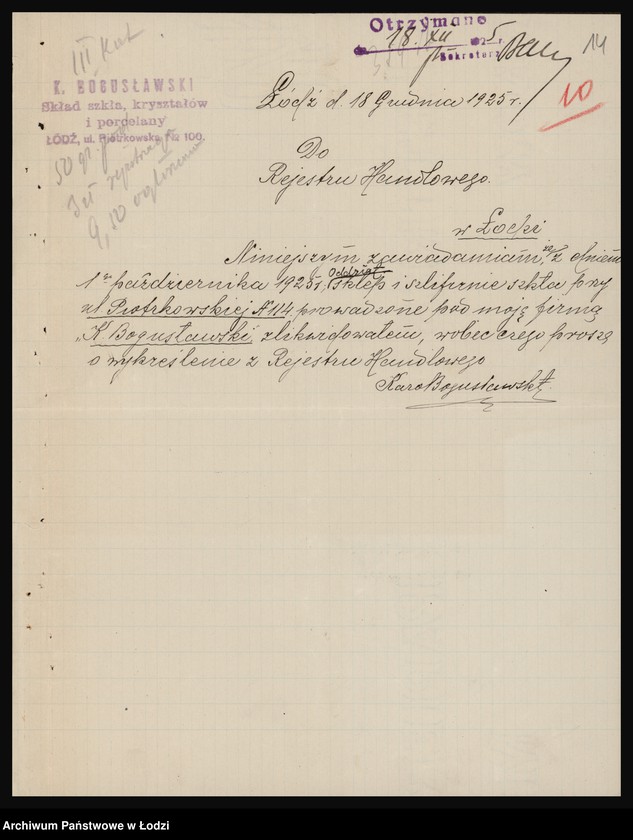 Otrzymano
18. XII 1925 r.
Sekretarz
14
10
III Kat.
K. BOGUSŁAWSKI
Skład szkła, kryształów
i porcelany
ŁÓDŹ, ul. Piotrkowska № 100.
50 gr.
rejestracja
9,50 ogłoszenie
Łódź d. 18 Grudnia 1925 r.
Do
Rejestru Handlowego.
w Łodzi
Niniejszym zawiadamiam, że z dniem
1go października 1925 r. Oddział sklep i szlifernie szkła przy
ul. Piotrkowskiej № 114 prowadzone pod moją firmą
„K. Bogusławski, zlikwidowałem, wobec czego proszę
o wykreślenie z Rejestru Handlowego
Karol Bogusławski
Archiwum Państwowe w Łodzi